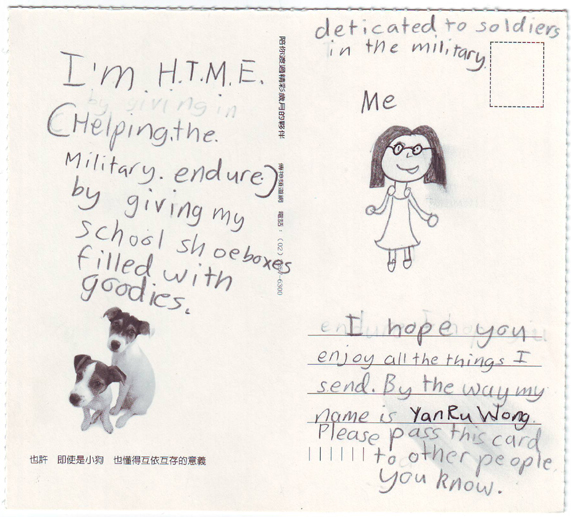 I'm H.T.M.E.
(Helping.the.
Military. endure)
by giving my
school shoeboxes
filled with
goodies.
也許 即使是小狗 也懂得互依互存的意義
deticated to soldiers
in the military.
Me
I hope you
enjoy all the things I
send. By the way my
name is YanRu Wong.
Please pass this card
to other people
you know.